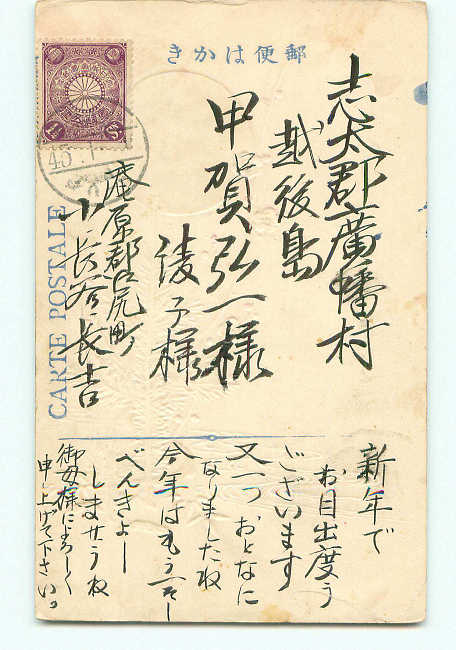 郵便はかき
志太郡廣幡村
越後島
甲賀弘一様
綾子様
庵原郡江尻町
小長谷長吉
CARTE POSTALE
1½ Sn
45.1
新年で
お目出度う
ございます
又一つおとなに
なりましたね
今年はもう一そー
べんきょー
しませうね
御母様によろしく
申し上げて下さい。